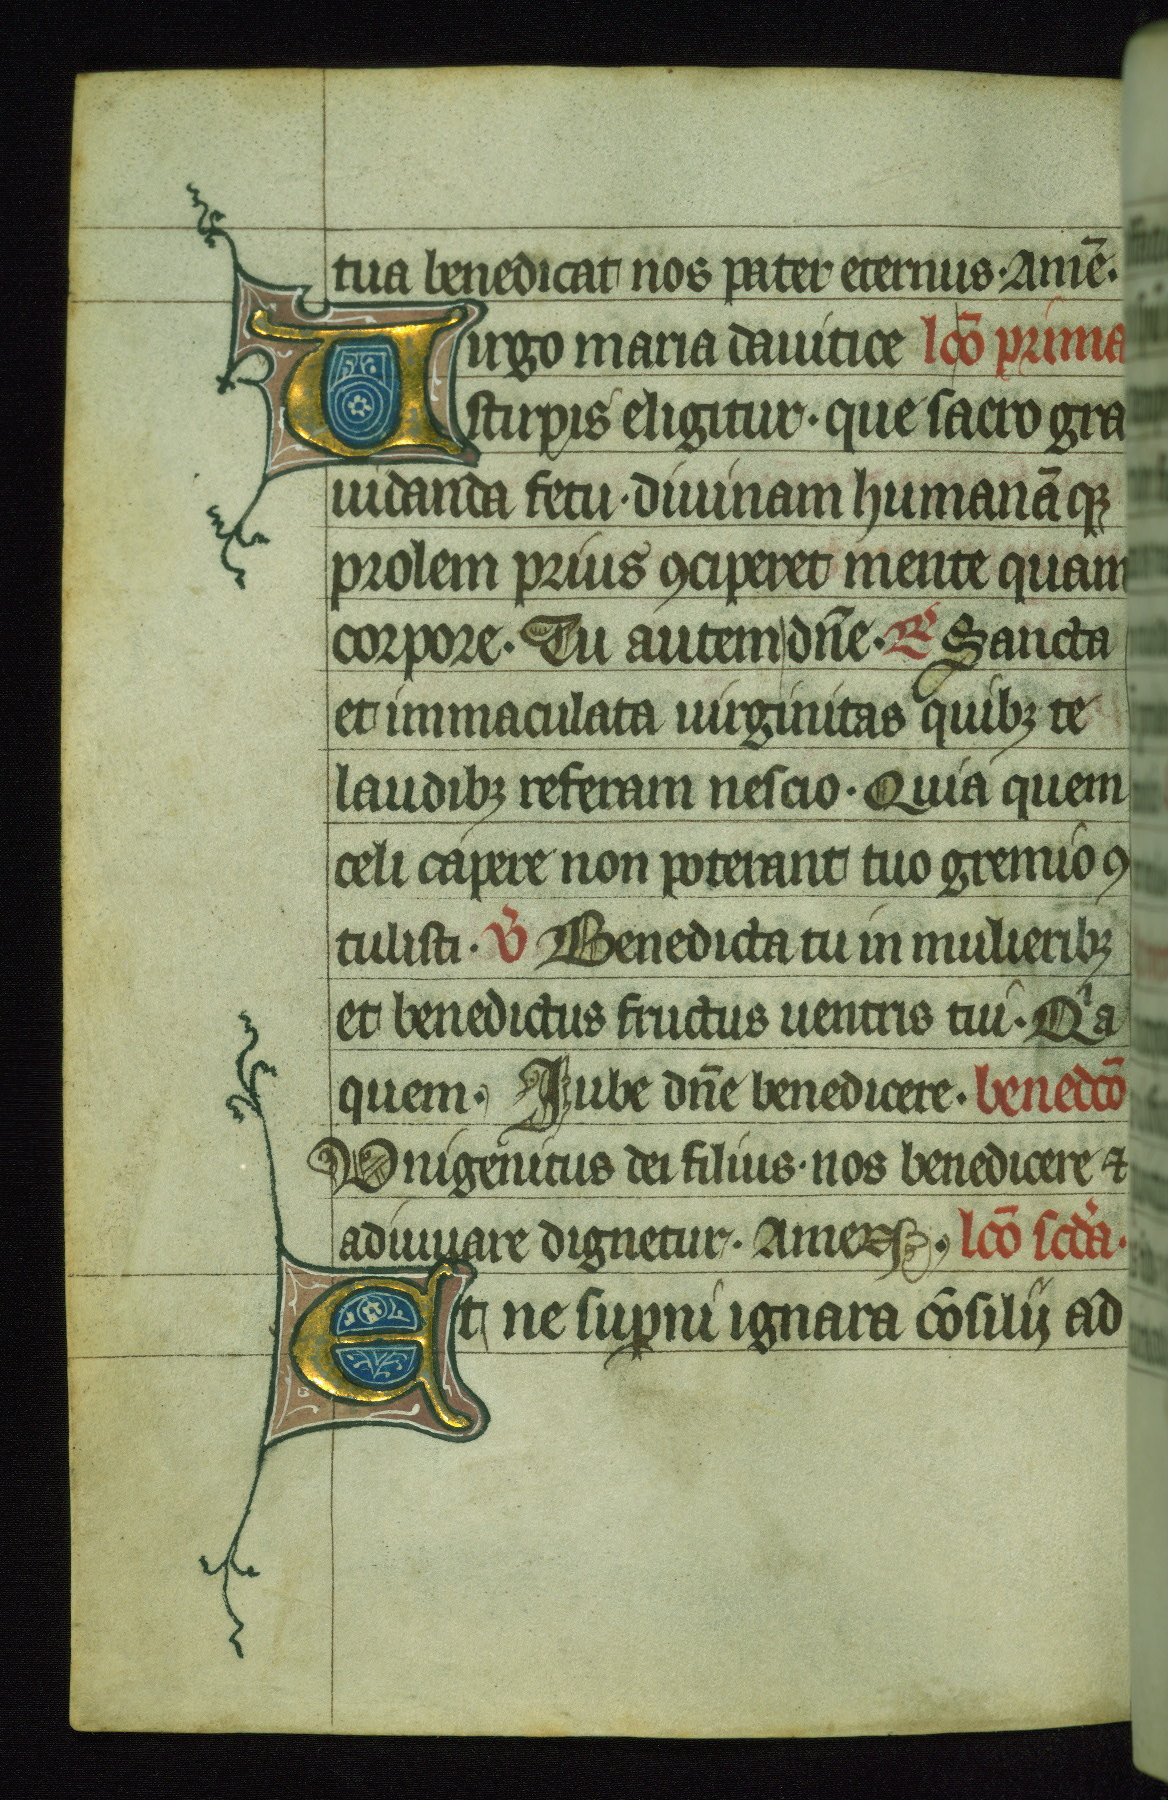 tua benedicat nos pater eternus · Amē·
Uirgo maria dauitice lcō prima
stirpis eligitur · que sacro gra
uidanda fetu · diuinam humanāqꝫ
prolem prius ꝯciperet mente quam
corpore · Tu autem dn̄e · R Sancta
et immaculata uirginitas quibꝫ te
laudibꝫ referam nescio · Quia quem
celi capere non poterant tuo gremio ꝯ
tulisti · v̄ Benedicta tu in mulieribꝫ
et benedictus fructus uentris tui · Qͥa
quem · Jube dn̄e benedicere · benedcō
Unigenitus dei filius · nos benedicere ⁊
adiuuare dignetur · Amen · lcō scd̓a ·
Et ne suꝑni ignara cōsilij ad